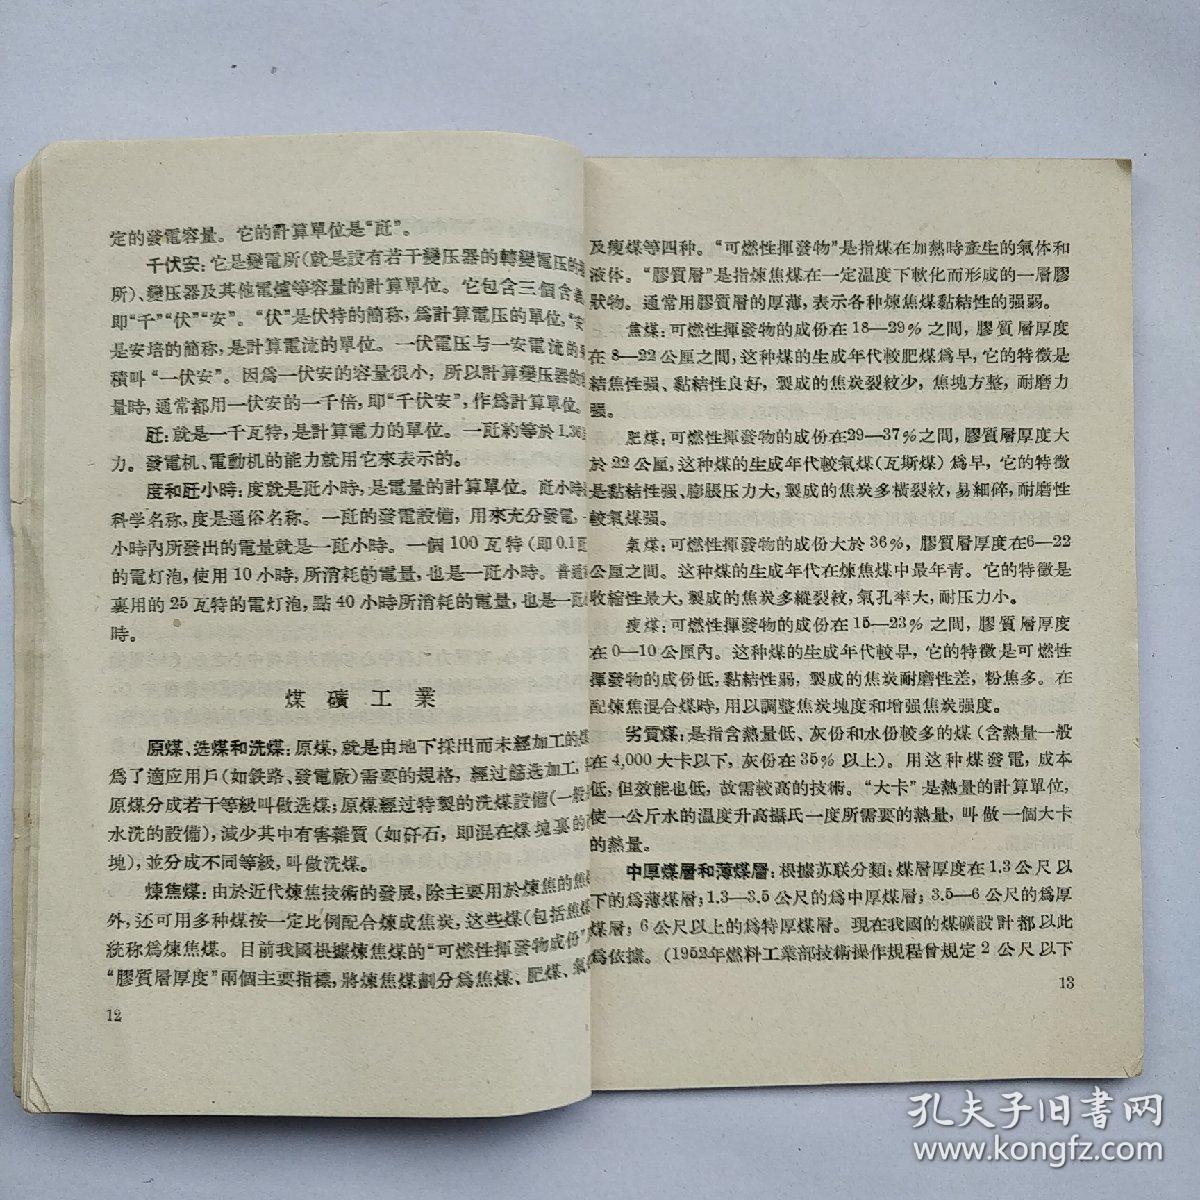 定的發電容量。它的計算單位是“瓩”。
千伏安：它是變電所（就是設有若干變压器的轉變電压的
所）、變压器及其他電爐等容量的計算單位。它包含三個含義
即“千”“伏”“安”。“伏”是伏特的簡称，爲計算電压的單位，“安
是安培的簡称，是計算電流的單位。一伏電压与一安電流的乘
積叫“一伏安”。因爲一伏安的容量很小，所以計算變压器的
量時，通常都用一伏安的一千倍，即“千伏安”，作爲計算單位。
瓩：就是一千瓦特，是計算電力的單位。一瓩約等於1.36
力。發電机、電動机的能力就用它來表示的。
度和瓩小時：度就是瓩小時，是電量的計算單位。瓩小時
科学名称，度是通俗名称。一瓩的發電設備，用來充分發電，一
小時內所發出的電量就是一瓩小時。一個100瓦特（即0.1瓩
的電灯泡，使用10小時，所消耗的電量，也是一瓩小時。普通
裏用的25瓦特的電灯泡，點40小時所消耗的電量，也是一瓩
時。
煤礦工業
原煤、选煤和洗煤：原煤，就是由地下採出而未經加工的煤
爲了適应用戶（如鉄路、發電廠）需要的規格，經过篩选加工，
原煤分成若干等級叫做选煤；原煤經过特製的洗煤設備（一般
水洗的設備），減少其中有害雜質（如矸石，即混在煤塊裏的
地），並分成不同等級，叫做洗煤。
煉焦煤：由於近代煉焦技術的發展，除主要用於煉焦的焦煤
外，还可用多种煤按一定比例配合煉成焦炭，这些煤（包括焦煤
統称爲煉焦煤。目前我國根據煉焦煤的“可燃性揮發物成份”
“膠質層厚度”兩個主要指標，將煉焦煤劃分爲焦煤、肥煤、氣
12
及瘦煤等四种。“可燃性揮發物”是指煤在加熱時產生的氣体和
液体。“膠質層”是指煉焦煤在一定温度下軟化而形成的一層膠
狀物。通常用膠質層的厚薄，表示各种煉焦煤黏結性的强弱。
焦煤：可燃性揮發物的成份在18—29%之間，膠質層厚度
在8—22公厘之間，这种煤的生成年代較肥煤爲早，它的特徵是
結焦性强、黏結性良好，製成的焦炭裂紋少，焦塊方整，耐磨力
强。
肥煤：可燃性揮發物的成份在29—37%之間，膠質層厚度大
於22公厘，这种煤的生成年代較氣煤（瓦斯煤）爲早，它的特徵
是黏結性强、膨脹压力大，製成的焦炭多橫裂紋，易細碎，耐磨性
較氣煤强。
氣煤：可燃性揮發物的成份大於36%，膠質層厚度在6—22
公厘之間。这种煤的生成年代在煉焦煤中最年青。它的特徵是
收縮性最大，製成的焦炭多縱裂紋，氣孔率大，耐压力小。
瘦煤：可燃性揮發物的成份在15—23%之間，膠質層厚度
在0—10公厘內。这种煤的生成年代較早，它的特徵是可燃性
揮發物的成份低，黏結性弱，製成的焦炭耐磨性差，粉焦多。在
配煉焦混合煤時，用以調整焦炭塊度和增强焦炭强度。
劣質煤：是指含熱量低、灰份和水份較多的煤（含熱量一般
在4,000大卡以下，灰份在35%以上）。用这种煤發電，成本
低，但效能也低，故需較高的技術。“大卡”是熱量的計算單位，
使一公斤水的温度升高攝氏一度所需要的熱量，叫做一個大卡
的熱量。
中厚煤層和薄煤層：根據苏联分類：煤層厚度在1.3公尺以
下的爲薄煤層；1.3—3.5公尺的爲中厚煤層；3.5—6公尺的爲厚
煤層；6公尺以上的爲特厚煤層。現在我國的煤礦設計都以此
爲依據。（1952年燃料工業部技術操作規程曾規定2公尺以下
13
孔夫子旧書网
www.kongfz.com